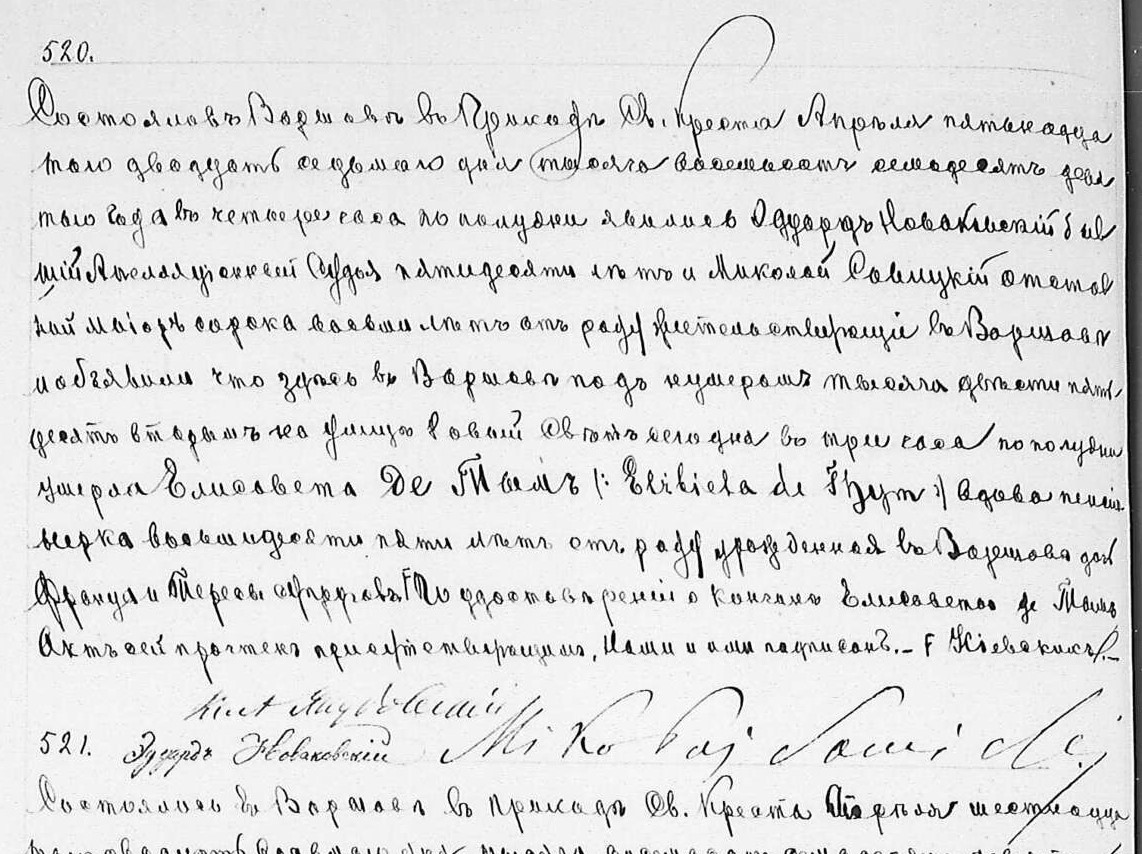 520.
Состоялось въ Варшавѣ въ Приходѣ Св. Креста Апрѣля пятьнадца
таго двадцать седьмаго дня тысяча восемьсотъ семьдесятъ девя
таго года въ четыре часа по полудни явились Эдуардъ Новаковскій быв
шій Апелляціонный Судья пятидесяти лѣтъ и Миколай Савицкій отстав
ной маіоръ сорока восьми лѣтъ отъ роду жительствующіе въ Варшавѣ
и объявили что здѣсь въ Варшавѣ подъ нумеромъ тысяча двѣсти пять
десятъ вторымъ на улицѣ Новый Свѣтъ сего дня въ три часа по полудни
умерла Елисавета де Тымъ (: Elżbieta de Thym :) вдова пенсіо
нерка восьмидесяти пяти лѣтъ отъ роду урожденная въ Варшавѣ дочь
Франца и Тересы супруговъ По удостовѣреніи о кончинѣ Елисаветы де Тымъ
Актъ сей прочтенъ присутствующимъ, Нами и ими подписанъ.-
521. Эдуардъ Новаковскій Mikołaj Sawicki
Состоялось въ Варшавѣ въ приходѣ Св. Креста Апрѣля шестнадца